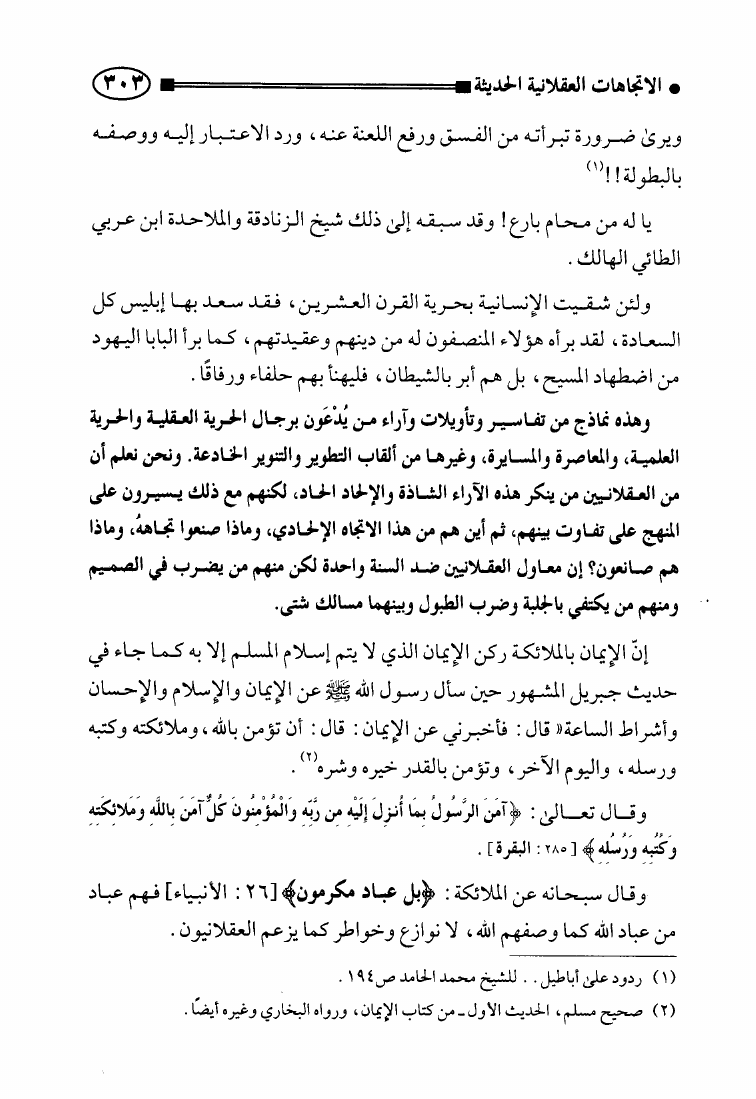 • الاتجاهات العقلانية الحديثة ٣٠٣
ويرىٰ ضرورة تبرأته من الفسق ورفع اللعنة عنه، ورد الاعتبار إليه ووصفه
بالبطولة!!(١)
يا له من محام بارع! وقد سبقه إلىٰ ذلك شيخ الزنادقة والملاحدة ابن عربي
الطائي الهالك.
ولئن شقيت الإنسانية بحرية القرن العشرين، فقد سعد بها إبليس كل
السعادة، لقد برأه هؤلاء المنصفون له من دينهم وعقيدتهم، كما برأ البابا اليهود
من اضطهاد المسيح، بل هم أبر بالشيطان، فليهنأ بهم حلفاء ورفاقًا.
وهذه نماذج من تفاسير وتأويلات وآراء من يُدْعَون برجال الحرية العقلية والحرية
العلمية، والمعاصرة والمسايرة، وغيرها من ألقاب التطوير والتنوير الخادعة. ونحن نعلم أن
من العقلانيين من ينكر هذه الآراء الشاذة والإلحاد الحاد، لكنهم مع ذلك يسيرون على
المنهج على تفاوت بينهم، ثم أين هم من هذا الاتجاه الإلحادي، وماذا صنعوا تجاههُ، وماذا
هم صانعون؟ إن معاول العقلانيين ضد السنة واحدة لكن منهم من يضرب في الصميم
ومنهم من يكتفي بالجلبة وضرب الطبول وبينهما مسالك شتى.
إنّ الإيمان بالملائكة ركن الإيمان الذي لا يتم إسلام المسلم إلا به كما جاء في
حديث جبريل المشهور حين سأل رسول الله ﷺ عن الإيمان والإسلام والإحسان
وأشراط الساعة« قال: فأخبرني عن الإيمان: قال: أن تؤمن بالله، وملائكته وكتبه
ورسله، واليوم الآخر، وتؤمن بالقدر خيره وشره(٢).
وقال تعالىٰ: ﴿آمَنَ الرَّسُولُ بِمَا أُنزِلَ إِلَيْهِ مِن رَّبِّهِ وَالْمُؤْمِنُونَ كُلٌّ آمَنَ بِاللَّهِ وَمَلائِكَتِهِ
وَكُتُبِهِ وَرُسُلِهِ﴾ [٢٨٥: البقرة].
وقال سبحانه عن الملائكة: ﴿بل عباد مكرمون﴾ [٢٦: الأنبياء] فهم عباد
من عباد الله كما وصفهم الله، لا نوازع وخواطر كما يزعم العقلانيون.
(١) ردود علىٰ أباطيل.. للشيخ محمد الحامد ص١٩٤.
(٢) صحيح مسلم، الحديث الأول ـ من كتاب الإيمان، ورواه البخاري وغيره أيضًا.